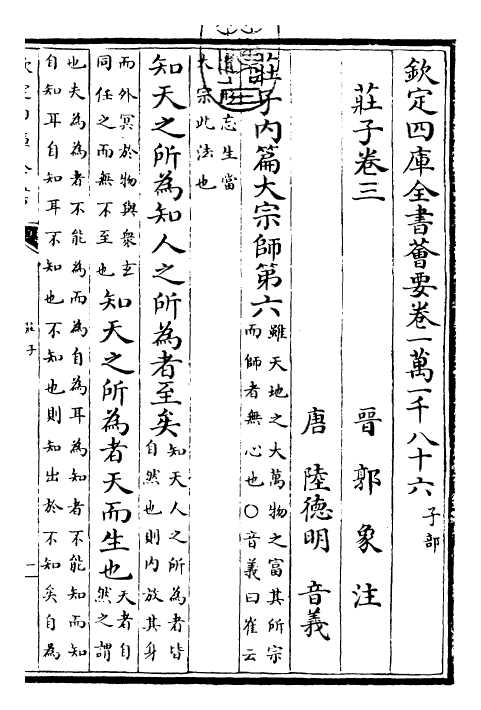 欽定四庫全書薈要卷一萬一千八十六 子部
莊子卷三 晉 郭象 注
唐 陸德明 音義
莊子內篇大宗師第六
雖天地之大萬物之富其所宗
而師者無心也○音義曰崔云
遺形忘生當
大宗此法也
知天之所為知人之所為者至矣
知天人之所為者皆
自然也則內放其身
而外冥於物與衆玄
同任之而無不至也
知天之所為者天而生也
天者自
然之謂
也夫為為者不能為而為自為耳為知者不能知而知
自知耳自知耳不知也不知也則知出於不知矣自為
莊子
一